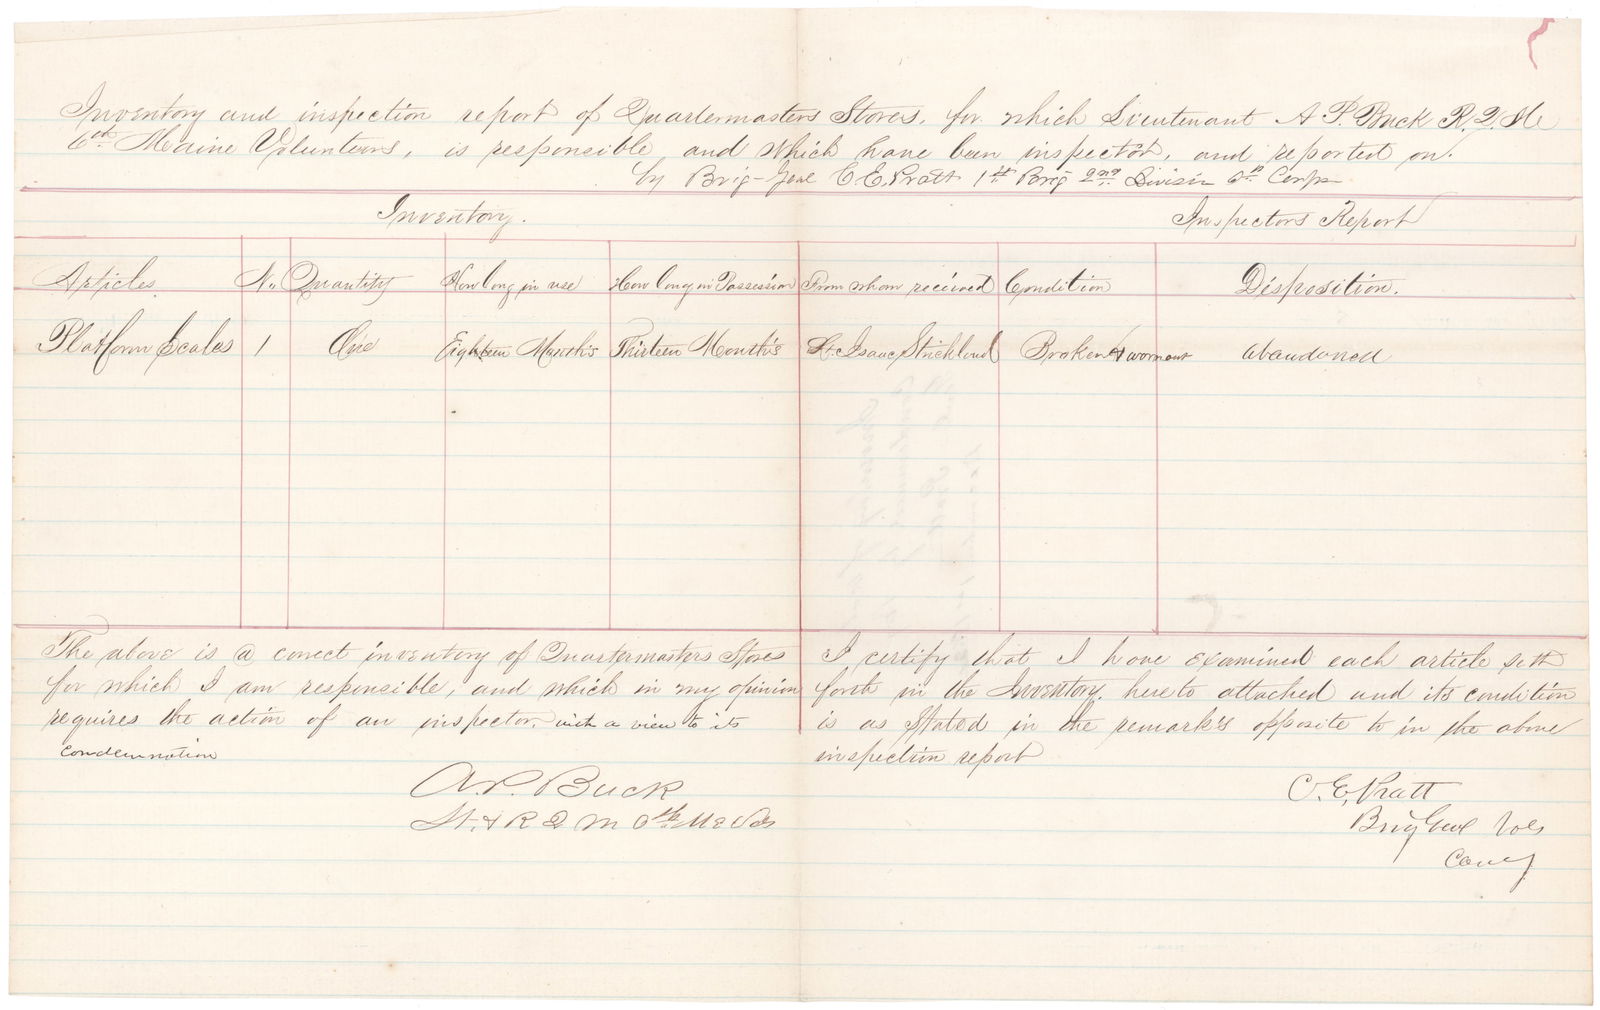 Inventory and inspection report of Quartermasters Stores, for which Lieutenant A P. Buck R. Q. M
6th Maine Volunteers, is responsible and which have been inspected, and reported on.
by Brig-Genl C E. Pratt 1st Brig 2nd Division 6th Corps
Inventory. Inspectors Report
Articles. No Quantity How long in use How long in Possession From whom received Condition Disposition.
Platform Scales 1 One Eighteen Months Thirteen Months Lt. Isaac Strickland Broken & wornout Abandoned
The above is a correct inventory of Quartermasters Stores
for which I am responsible, and which in my opinion
requires the action of an inspector. with a view to its
condemnation
A.P. Buck
Lt. & R Q M 6th Me Vols
I certify that I have examined each article sett
forth in the Inventory. hereto attached and its condition
is as Stated in the remark's opposite to in the above
inspection report
C. E. Pratt
Brig Genl Vols
Comg